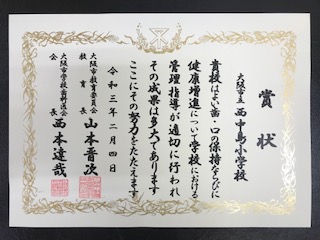 賞状
大阪市立 西中島小学校
貴校はよい歯・口の保持ならびに
健康増進について学校における
管理指導が適切に行われ
その成果は多大であります
ここにその努力をたたえます
令和三年二月四日
大阪市教育委員会
教育長 山本晋次
大阪市学校歯科医会
会長 西本達哉